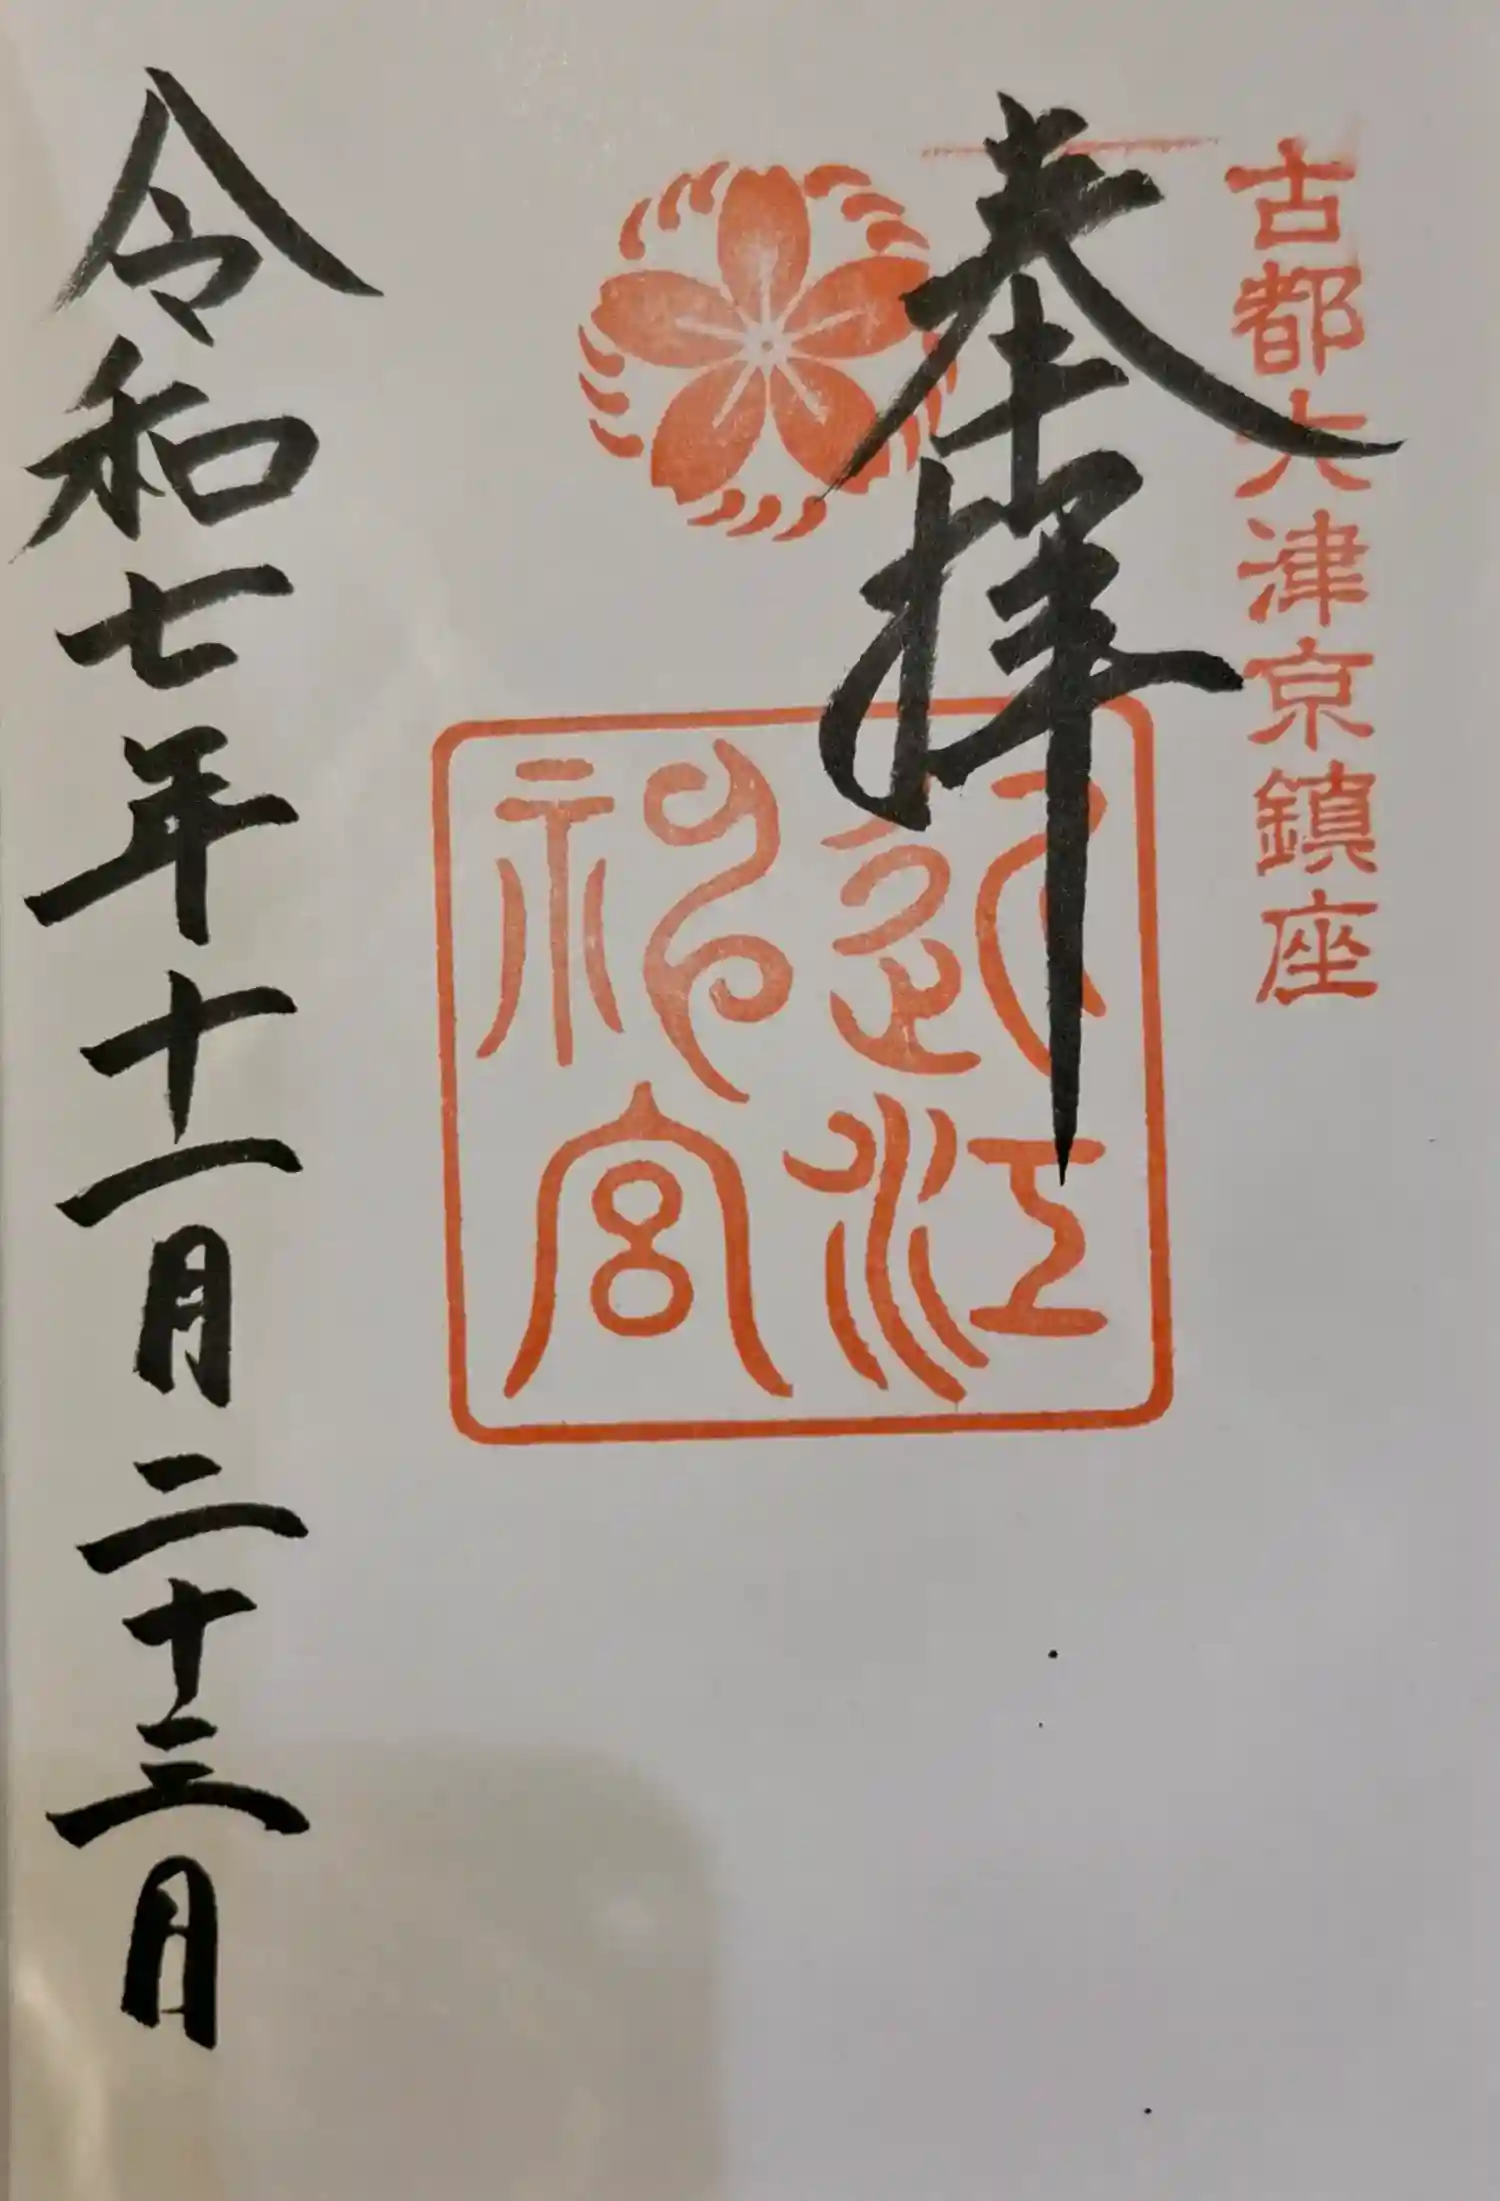 古都大津京鎮座
奉拝
近江神宮
令和七年十一月二十三日